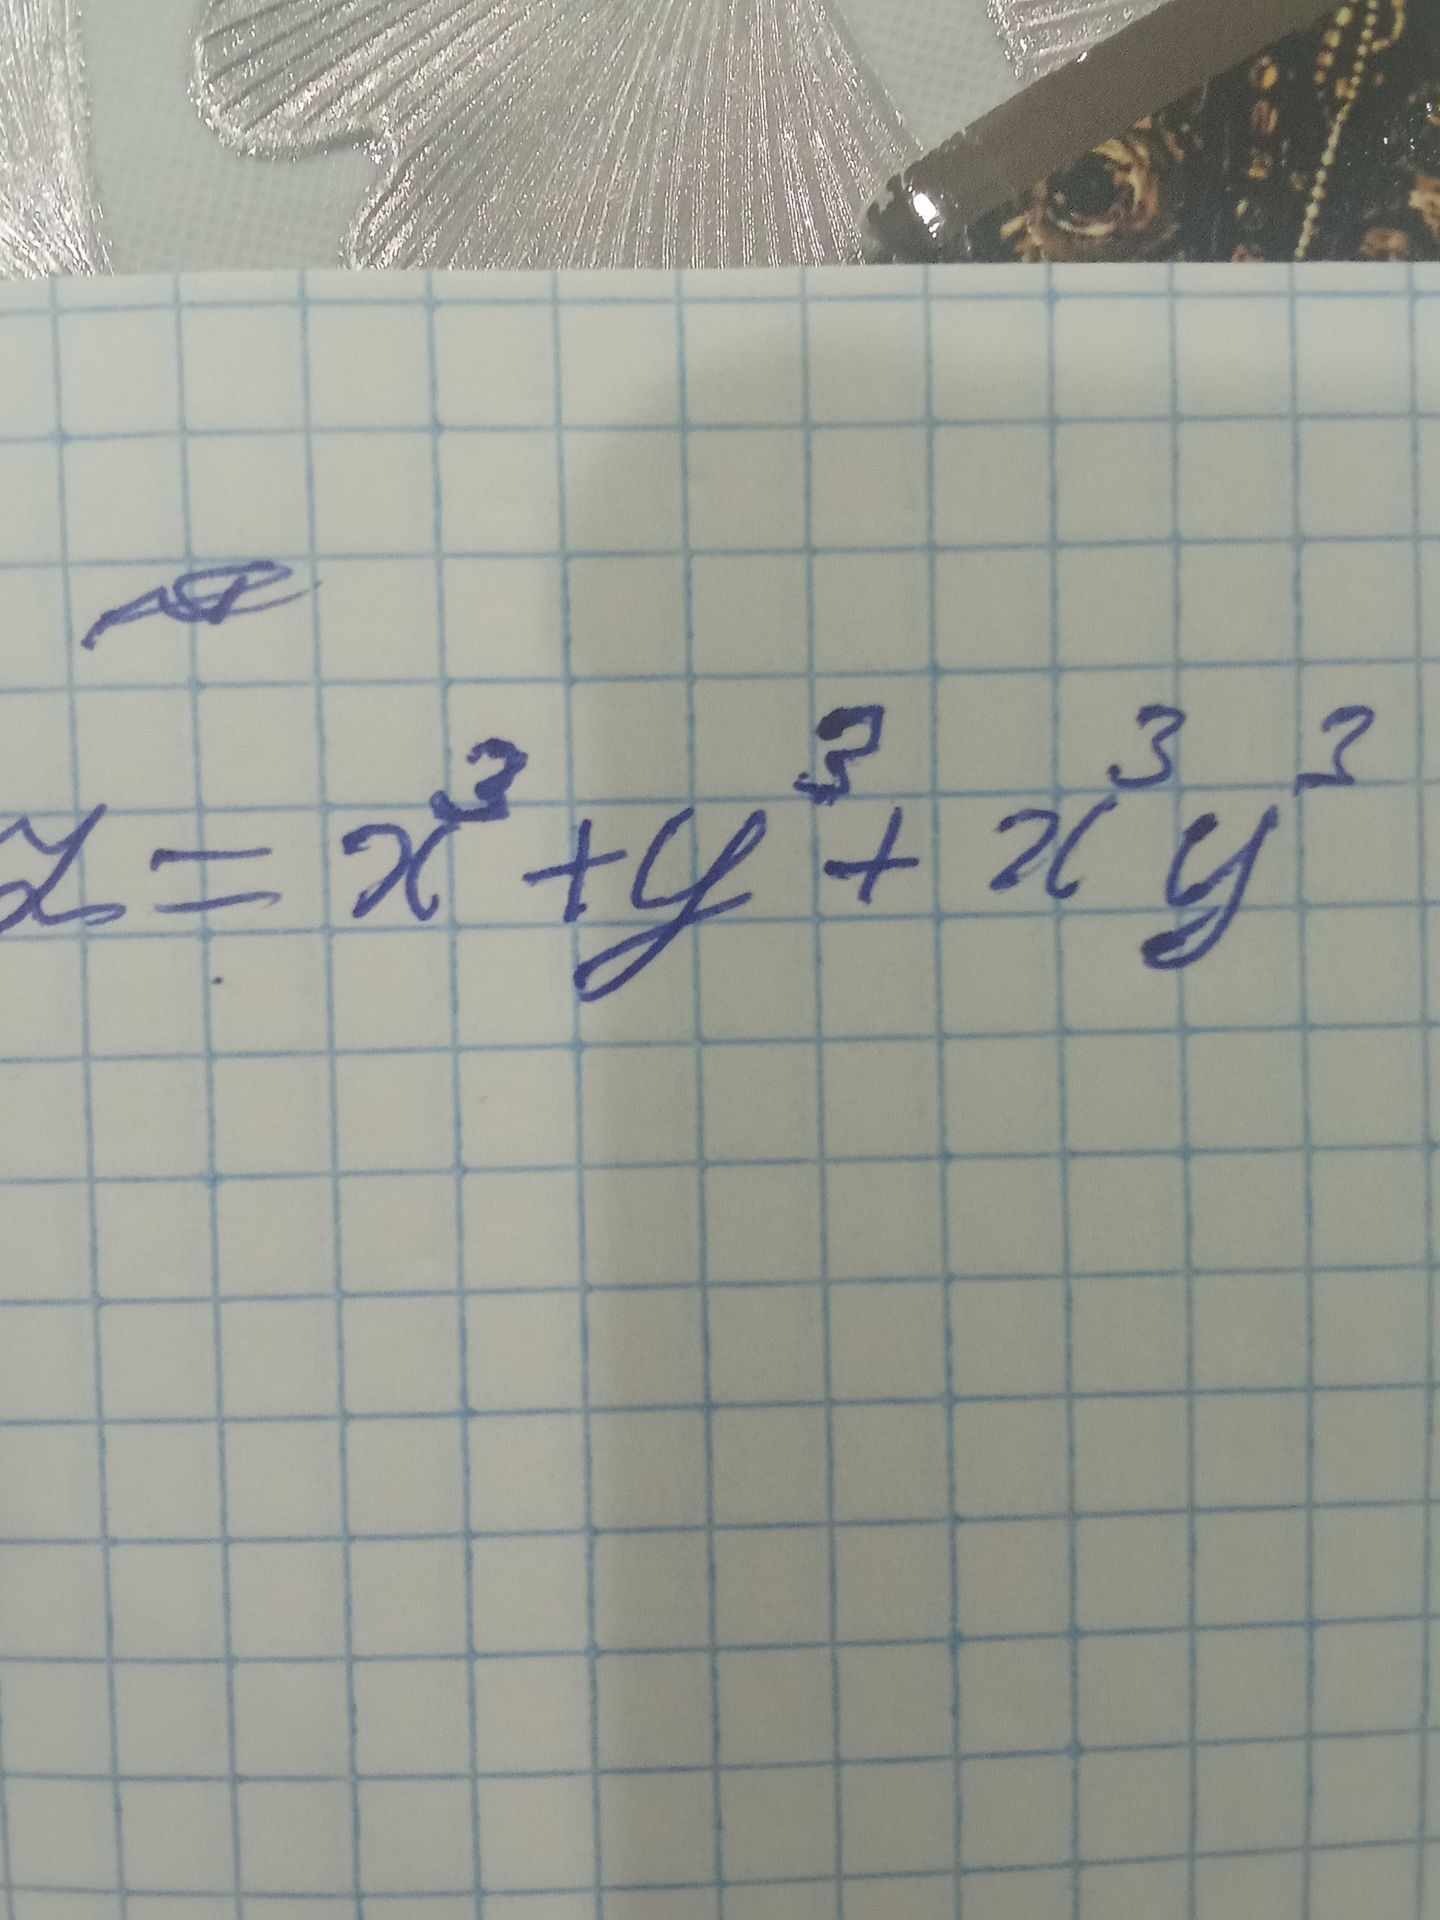 z = x³ + y³ + x³y³